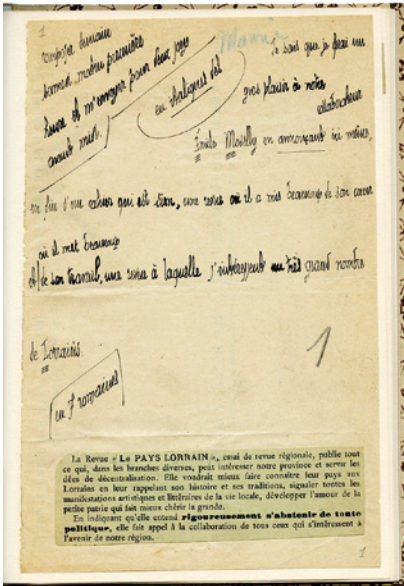 1
composer demain
samedi matin première
heure et m'envoyer pour deux pages
avant midi.
en italiques del
Je sais que je ferai un
gros plaisir à notre
collaborateur
Émile Moselly en annonçant ici même,
en fin d'un cahier qui est sien, une revue où il a mis beaucoup de son cœur
où il met beaucoup
et de son travail, une revue à laquelle s'intéressent un très grand nombre
de Lorrains.
1
en 7 romaines
La Revue « LE PAYS LORRAIN », essai de revue régionale, publie tout
ce qui, dans les branches diverses, peut intéresser notre province et servir les
idées de décentralisation. Elle voudrait mieux faire connaître leur pays aux
Lorrains en leur rappelant son histoire et ses traditions, signaler toutes les
manifestations artistiques et littéraires de la vie locale, développer l'amour de la
petite patrie qui fait mieux chérir la grande.
En indiquant qu'elle entend rigoureusement s'abstenir de toute
politique, elle fait appel à la collaboration de tous ceux qui s'intéressent à
l'avenir de notre région.
1